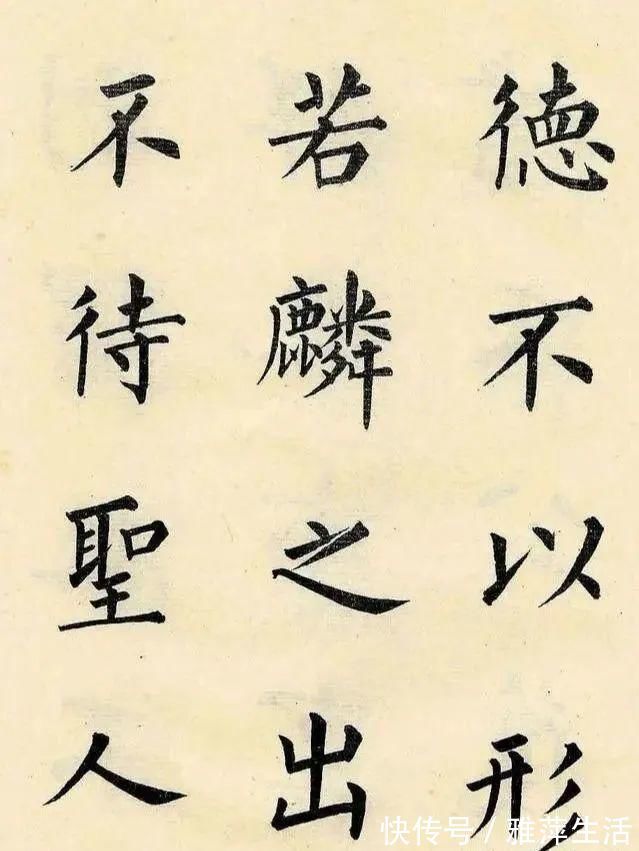 德不以形
若麟之出
不待聖人
快传号/雅萍生活